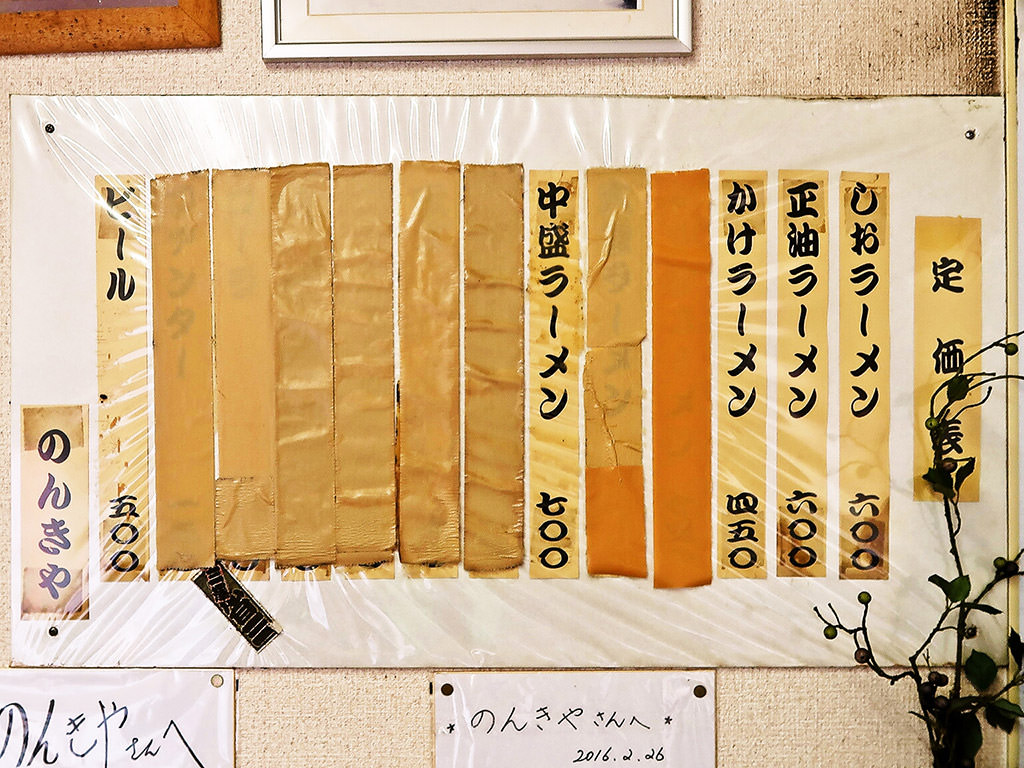 定価表
しおラーメン 六〇〇
正油ラーメン 六〇〇
かけラーメン 四五〇
中盛ラーメン 七〇〇
ビール 五〇〇
のんきや
のんきやさんへ
2016.2.26
のんきやさんへ